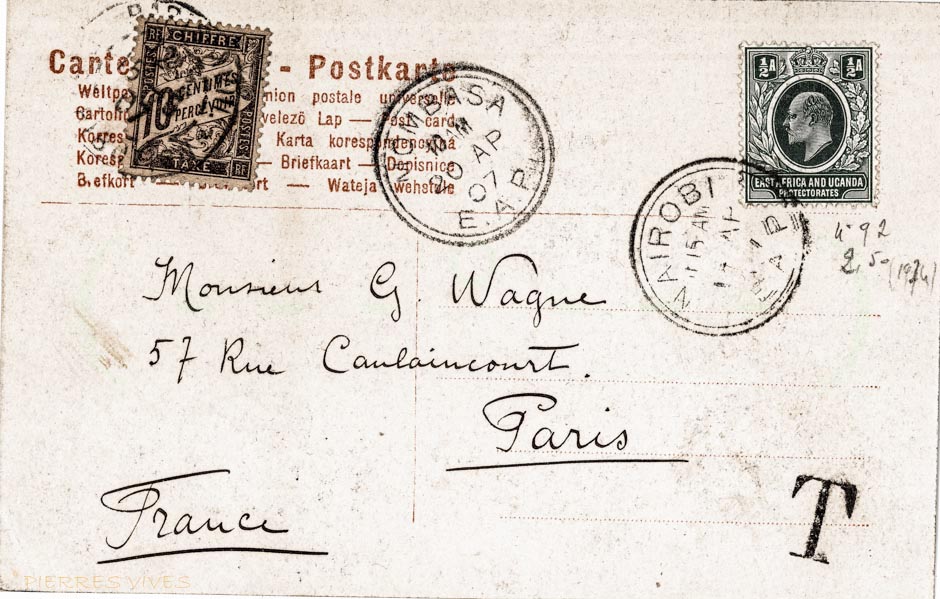 Carte - Postkarte
nion postale universelle
velező Lap — Post card
Karta korespondencyjna
— Briefkaart — Dopisnice
Brefkort — — Wateja wehstule
RF CHIFFRE
POSTES
10 CENTIMES
A PERCEVOIR
POSTES
TAXE RF
MOMBASA
10 AM
20 AP
07
E.A.P.
½A ½A
EAST AFRICA AND UGANDA
PROTECTORATES
NAIROBI
15 AM
AP
E.A.P.
Nº 92
2,50 (1974)
Monsieur G. Wagne
57 Rue Caulaincourt.
Paris
France
T
PIERRES VIVES